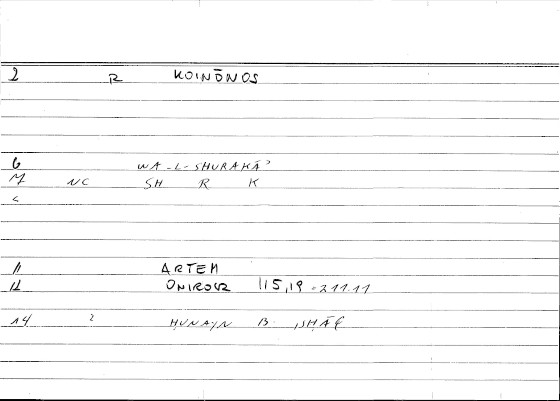 2 R KOINŌNOS
6 WA-L-SHURAKĀʾ
7 NC SH R K
11 ARTEM
12 ONIROCR 115,19 = 211.11
14 2 ḤUNAYN B. ISḤĀQ